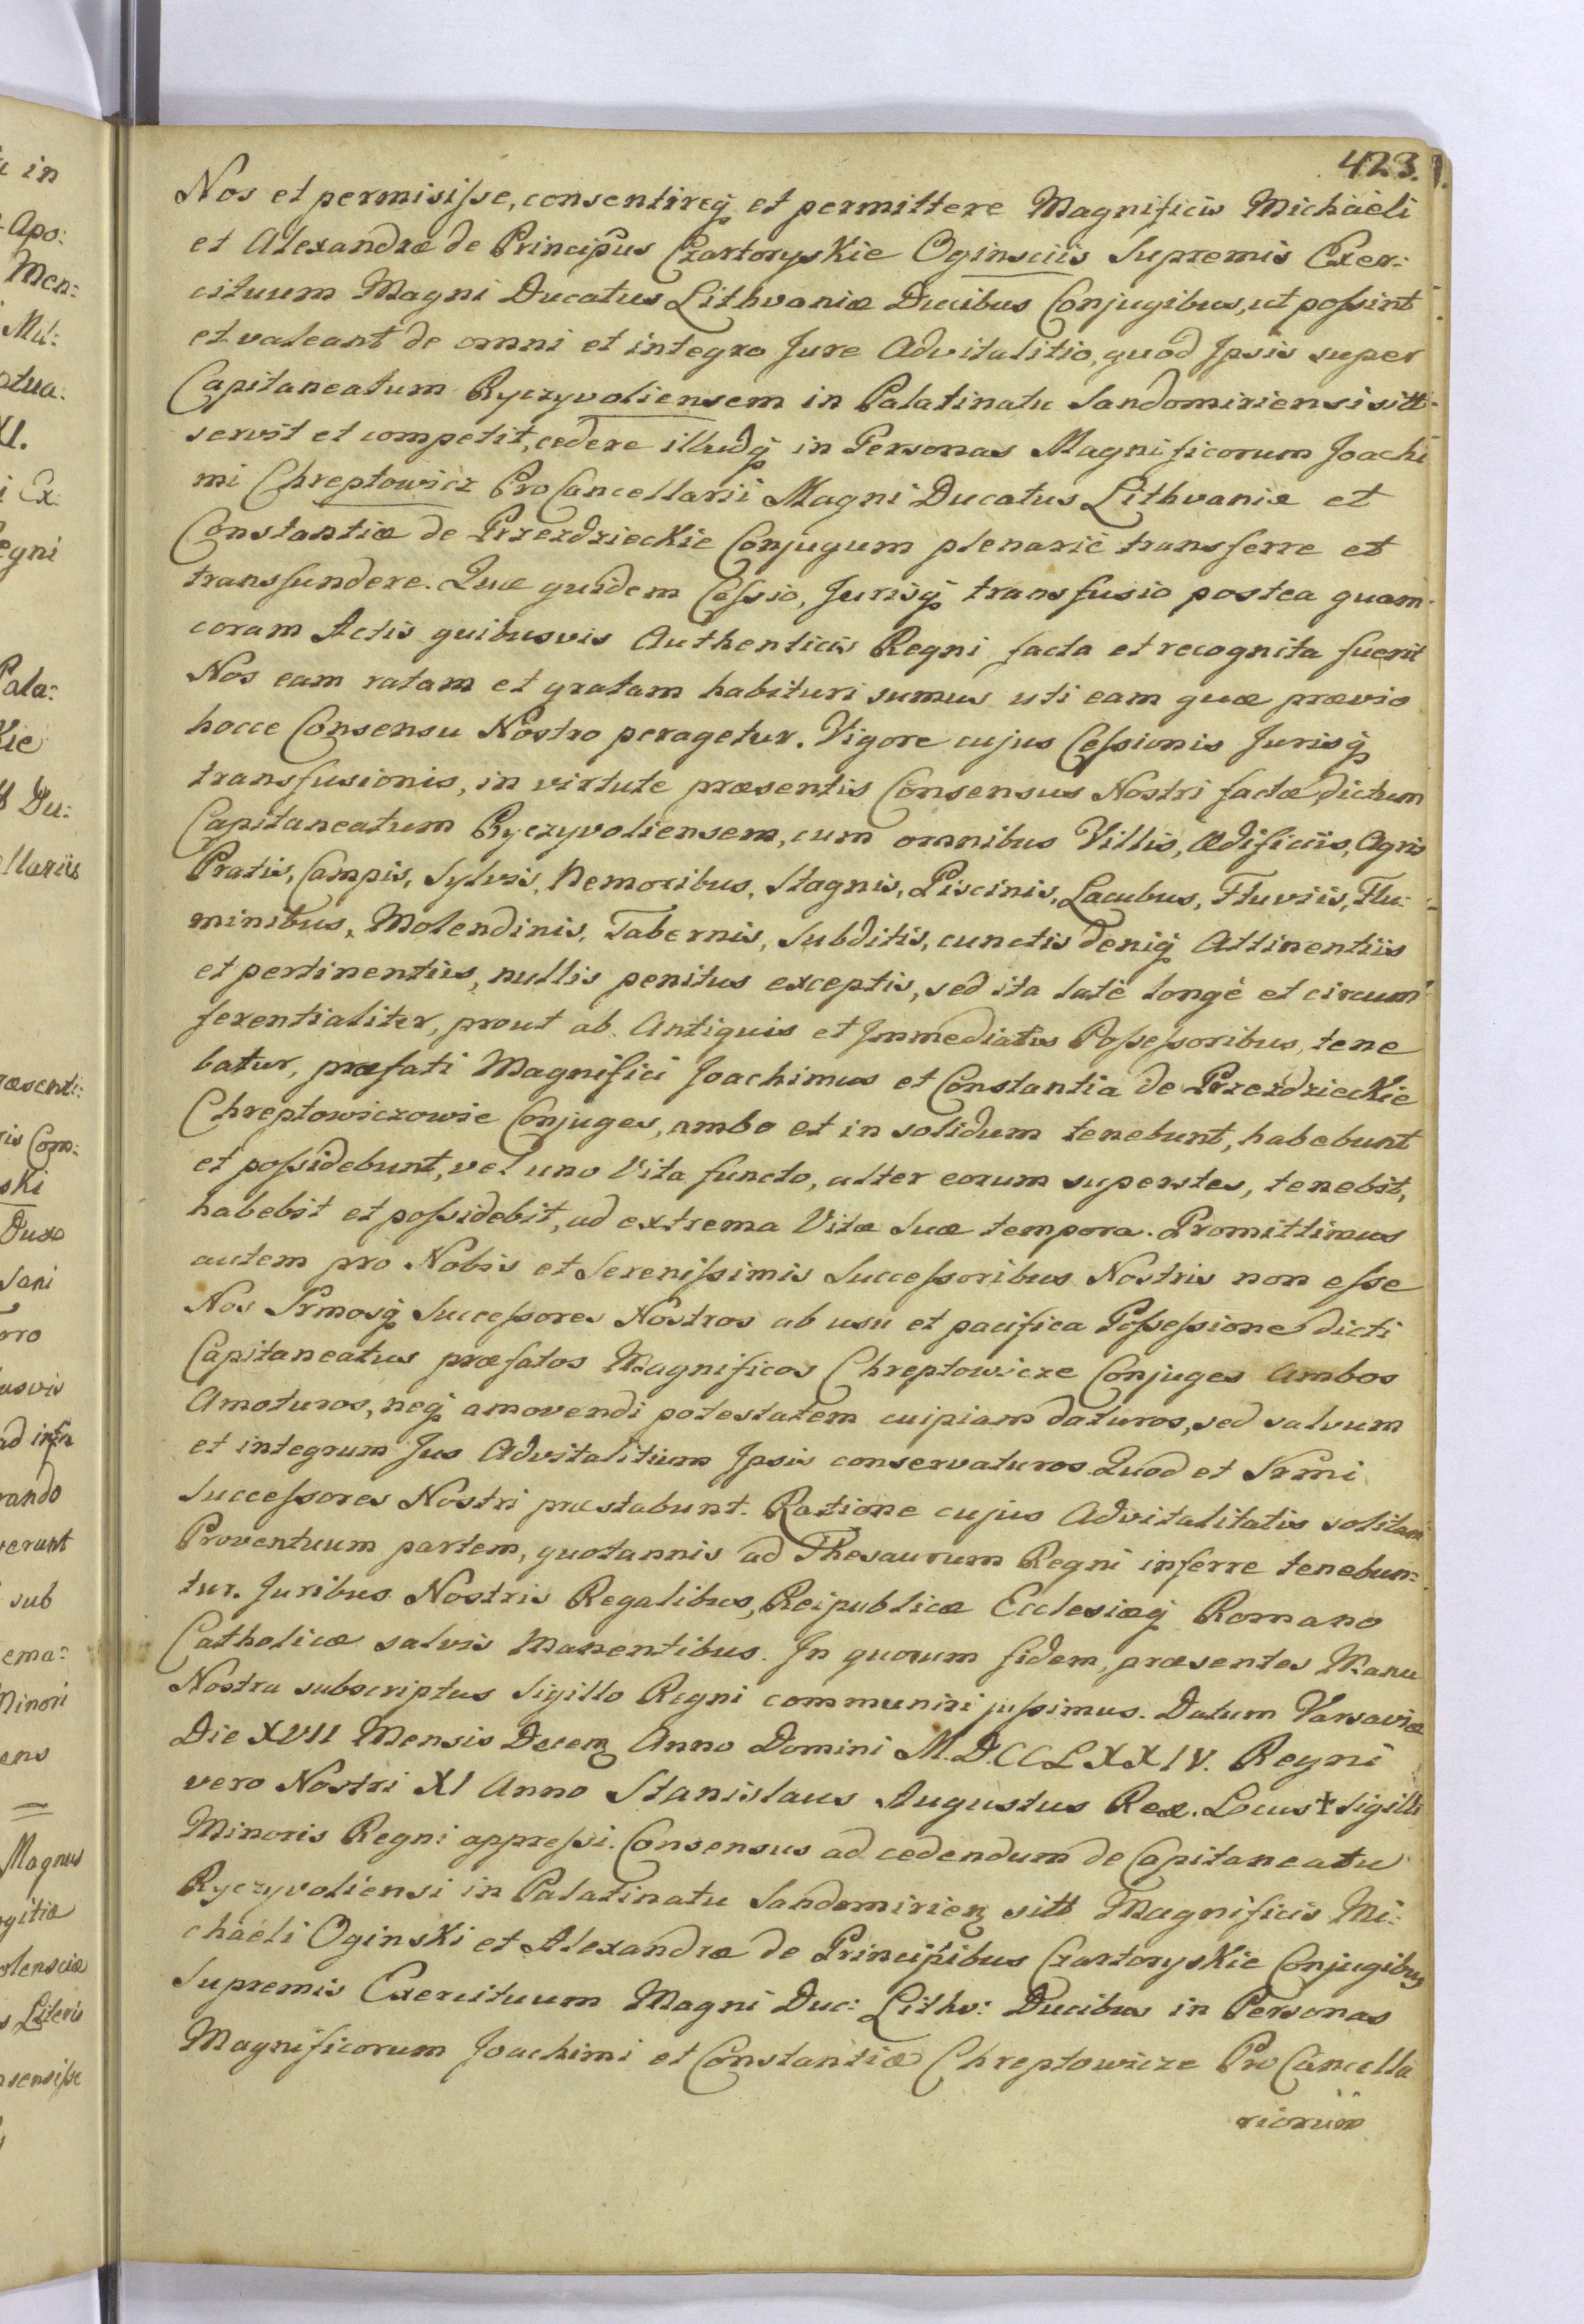 423.
Nos et permisisse, consentireq́ et permittere Magnificis Michaëli
et Alexandræ de Principibus Czartoryskie Oginsciis Supremis Exer:
cituum Magni Ducatus Lithvaniæ Ducibus Conjugibus, ut possint
et valeant de omni et integro Jure Advitalitio, quod Ipsis super
Capitaneatum Ryczyvoliensem in Palatinatu Sandomiriensi sitt:
servit et competit, cedere illudq́ in Personas Magnificorum Joachi
mi Chreptowicz ProCancellarii Magni Ducatus Lithvaniæ et
Constantiæ de Przezdzieckie Conjugum plenariè transferre et
transfundere. Quæ quidem Cessio, Jurisq́ transfusio postea quam
coram Actis quibusvis Authenticis Regni facta et recognita fuerit
Nos eam ratam et gratam habituri sumus uti eam quæ prævio
hocce Consensu Nostro peragetur. Vigore cujus Cessionis Jurisq́
transfusionis, in virtute præsentis Consensus Nostri factæ, dictum
Capitaneatum Ryczyvoliensem, cum omnibus Villis, Ædificiis, Agris
Pratis, Campis, Sylvis, Nemoribus, Stagnis, Piscinis, Lacubus, Fluviis, Flu:
minibus, Molendinis, Tabernis, Subditis, cunctis deniq́ Attinentiis
et pertinentiis, nullis penitus exceptis, sed ita latè longè et circum
ferentialiter, prout ab Antiquis et Immediatis Possessoribus, tene
batur, præfati Magnifici Joachimus et Constantia de Przezdzieckie
Chreptowiczowie Conjuges, ambo et in solidum tenebunt, habebunt
et possidebunt, vel uno Vita functo, alter eorum superstes, tenebit,
habebit et possidebit, ad extrema Vitæ Suæ tempora. Promittimus
autem pro Nobis et Serenissimis Successoribus Nostris non esse
Nos Srmosq́ Successores Nostros ab usu et pacifica Possessione dicti
Capitaneatus præfatos Magnificos Chreptowicze Conjuges Ambos
Amoturos, neq́ amovendi potestatem cuipiam daturos, sed salvum
et integrum Jus Advitalitium Ipsis conservaturos Quod et Srmi
Successores Nostri præstabunt. Ratione cujus Advitalitatis solitam
Proventuum partem, quotannis ad Thesaurum Regni inferre tenebun:
tur. Juribus Nostris Regalibus, Reipublicæ Ecclesiæq́ Romano
Catholicæ salvis Manentibus. In quorum fidem, præsentes Manu
Nostra subscriptas Sigillo Regni communiri jussimus. Datum Varsaviæ
Die XVII Mensis Decem̃ Anno Domini M.DCCLXXIV. Regni
vero Nostri XI Anno Stanislaus Augustus Rex. Locus + Sigilli
Minoris Regni appressi. Consensus ad cedendum de Capitaneatu
Ryczyvoliensi in Palatinatu Sandomirien̄ sitt Magnificis Mi:
chaëli Oginski et Alexandræ de Principibus Czartoryskie Conjugibus
Supremis Exercituum Magni Duc: Lithv: Ducibus in Personas
Magnificorum Joachimi et Constantiæ Chreptowicze ProCancella
riorum